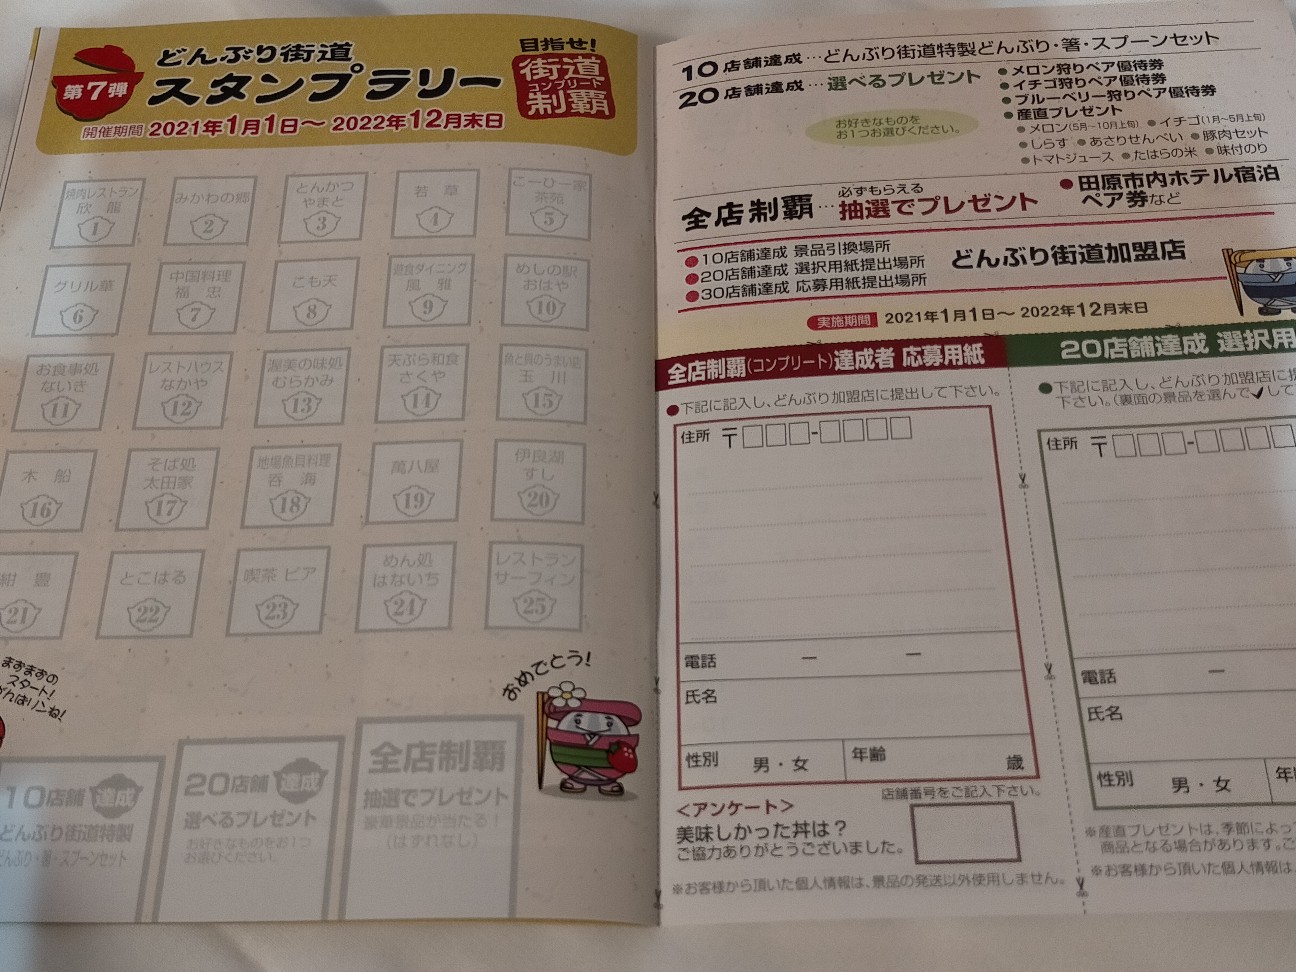 第7弾
どんぶり街道
スタンプラリー
目指せ!
街道
コンプリート
制覇
開催期間 2021年1月1日～2022年12月末日
焼肉レストラン
欣龍
1
みかわの郷
2
とんかつ
やまと
3
若草
4
こーひー家
茶苑
5
グリル華
6
中国料理
福忠
7
こも天
8
遊食ダイニング
風雅
9
めしの駅
おはや
10
お食事処
ないき
11
レストハウス
なかや
12
渥美の味処
むらかみ
13
天ぷら和食
さくや
14
魚と貝のうまい店
玉川
15
木船
16
そば処
太田家
17
地場魚貝料理
呑海
18
萬八屋
19
伊良湖
すし
20
紺豊
21
とこはる
22
喫茶 ピア
23
めん処
はないち
24
レストラン
サーフィン
25
まおまおの
スタート!
がんばリンね!
おめでとう!
10店舗 達成
どんぶり街道特製
どんぶり・箸・スプーンセット
20店舗 達成
選べるプレゼント
お好きなものをお1つ
お選びください。
全店制覇
抽選でプレゼント
豪華景品が当たる!
(はずれなし)
10店舗達成…どんぶり街道特製どんぶり・箸・スプーンセット
20店舗達成…選べるプレゼント
お好きなものを
お1つお選びください。
●メロン狩りペア優待券
●イチゴ狩りペア優待券
●ブルーベリー狩りペア優待券
●産直プレゼント
●メロン(5月～10月上旬) ●イチゴ(1月～5月上旬)
●しらす ●あさりせんべい ●豚肉セット
●トマトジュース ●たはらの米 ●味付のり
全店制覇…必ずもらえる
抽選でプレゼント
●田原市内ホテル宿泊
ペア券など
●10店舗達成 景品引換場所
●20店舗達成 選択用紙提出場所
●30店舗達成 応募用紙提出場所
どんぶり街道加盟店
実施期間 2021年1月1日～2022年12月末日
全店制覇(コンプリート)達成者 応募用紙
●下記に記入し、どんぶり加盟店に提出して下さい。
住所 〒□□□-□□□□
電話 ー ー
氏名
性別 男・女 年齢 歳
店舗番号をご記入下さい。
<アンケート>
美味しかった丼は?
ご協力ありがとうございました。
※お客様から頂いた個人情報は、景品の発送以外使用しません。
20店舗達成 選択用
●下記に記入し、どんぶり加盟店に提
下さい。(裏面の景品を選んで✓して
住所 〒□□□-□□□□
電話 ー
氏名
性別 男・女 年
※産直プレゼントは、季節によっ
商品となる場合があります。ご
※お客様から頂いた個人情報は、